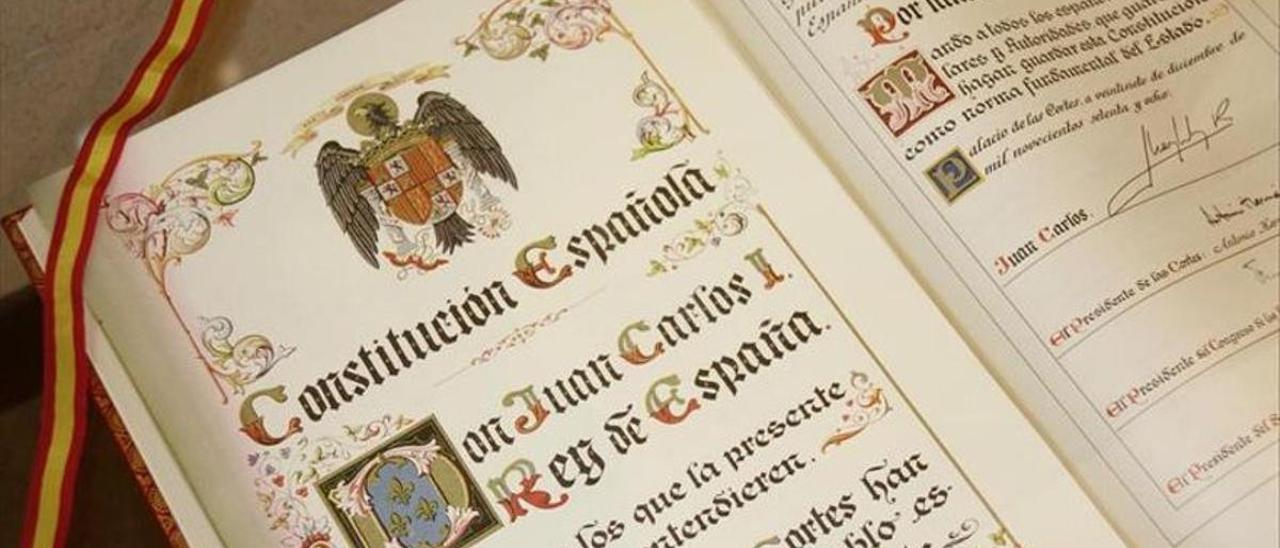 Constitución Española
Don Juan Carlos I.
Rey de España.
los que la presente
Cortes han
es-
Española
Por
ando a todos los españoles
lares y Autoridades que guarden
hagan guardar esta Constitución
como norma fundamental del Estado.
Palacio de las Cortes, a veintisiete de diciembre de
mil novecientos setenta y ocho.
Juan Carlos.
El Presidente de las Cortes: Antonio
El Presidente del Congreso de los
El Presidente del